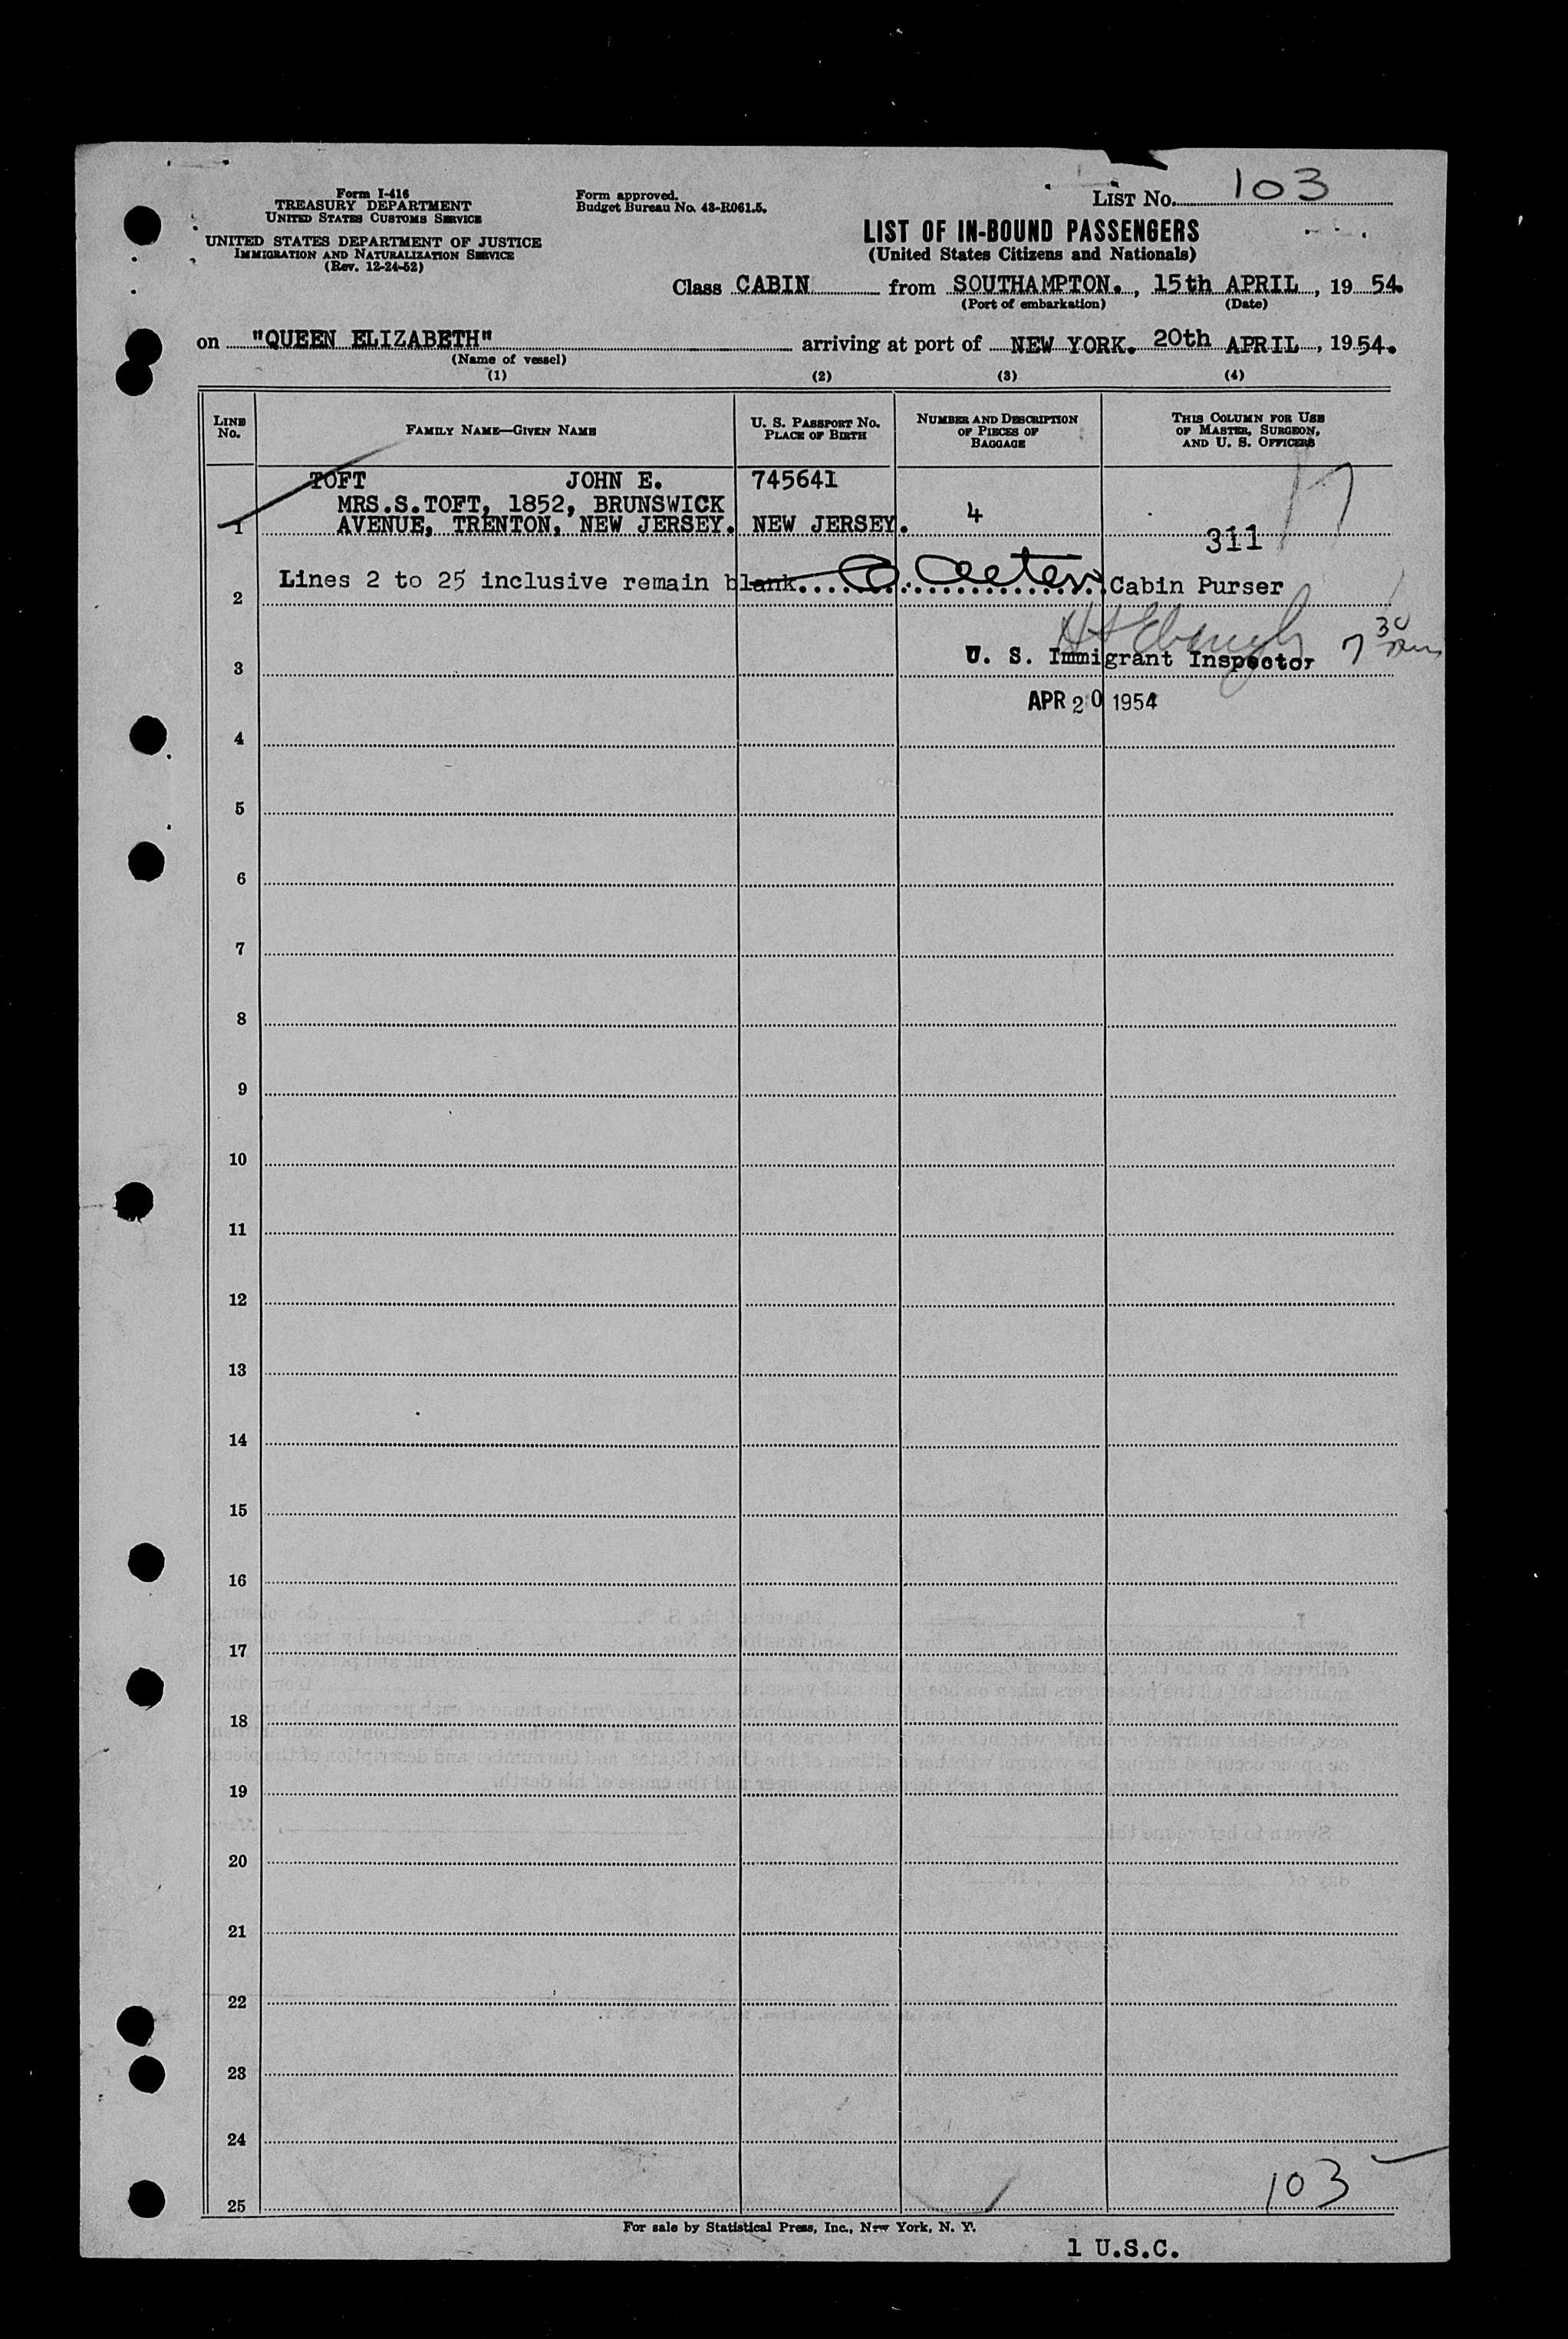 Form I-416
TREASURY DEPARTMENT
UNITED STATES CUSTOMS SERVICE
UNITED STATES DEPARTMENT OF JUSTICE
IMMIGRATION AND NATURALIZATION SERVICE
(Rev. 12-24-52)
Form approved.
Budget Bureau No. 43-R061.5.
LIST No. 103
LIST OF IN-BOUND PASSENGERS
(United States Citizens and Nationals)
Class CABIN from SOUTHAMPTON. , 15th APRIL , 19 54.
(Port of embarkation) (Date)
on "QUEEN ELIZABETH" arriving at port of NEW YORK. 20th APRIL , 19 54.
(Name of vessel)
(1) (2) (3) (4)
LINE No. FAMILY NAME—GIVEN NAME U. S. PASSPORT No. PLACE OF BIRTH NUMBER AND DESCRIPTION OF PIECES OF BAGGAGE THIS COLUMN FOR USE OF MASTER, SURGEON, AND U. S. OFFICERS
TOFT JOHN E. 745641
MRS.S.TOFT, 1852, BRUNSWICK 4 17
1 AVENUE, TRENTON, NEW JERSEY. NEW JERSEY. 311
Lines 2 to 25 inclusive remain blank. Cabin Purser
2
7 30
3 U. S. Immigrant Inspector
APR 20 1954
4
5
6
7
8
9
10
11
12
13
14
15
16
17
18
19
20
21
22
23
24
103
25
For sale by Statistical Press, Inc., New York, N. Y.
1 U.S.C.